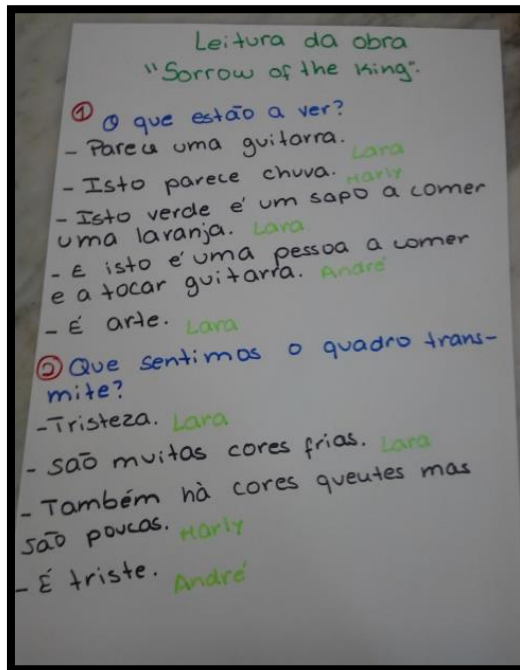 Leitura da obra
"Sorrow of the King".
① O que estão a ver?
- Parece uma guitarra. Lara
- Isto parece chuva. Harly
- Isto verde é um sapo a comer
uma laranja. Lara
- E isto é uma pessoa a comer
e a tocar guitarra. André
- É arte. Lara
② Que sentimos o quadro trans-
mite?
- Tristeza. Lara
- São muitas cores frias. Lara
- Também hà cores queutes mas
são poucas. Harly
- É triste. André